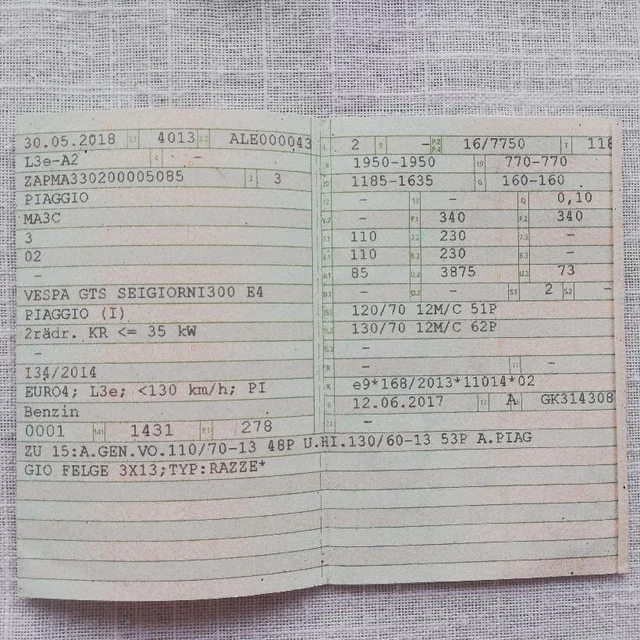 30.05.2018 4013 ALE000043
L3e-A2 -
ZAPMA330200005085 3
PIAGGIO
MA3C
3
02
-
VESPA GTS SEIGIORNI300 E4
PIAGGIO (I)
2rädr. KR <= 35 kW
-
134/2014
EURO4; L3e; <130 km/h; PI
Benzin
0001 1431 278
2 - 16/7750 118
1950-1950 770-770
1185-1635 160-160
- - 0,10
- 340 340
110 230 -
110 230 -
85 3875 73
- - 2 -
120/70 12M/C 51P
130/70 12M/C 62P
-
- -
e9*168/2013*11014*02
12.06.2017 A GK314308
-
ZU 15:A.GEN.VO.110/70-13 48P U.HI.130/60-13 53P A.PIAG
GIO FELGE 3X13;TYP:RAZZE*